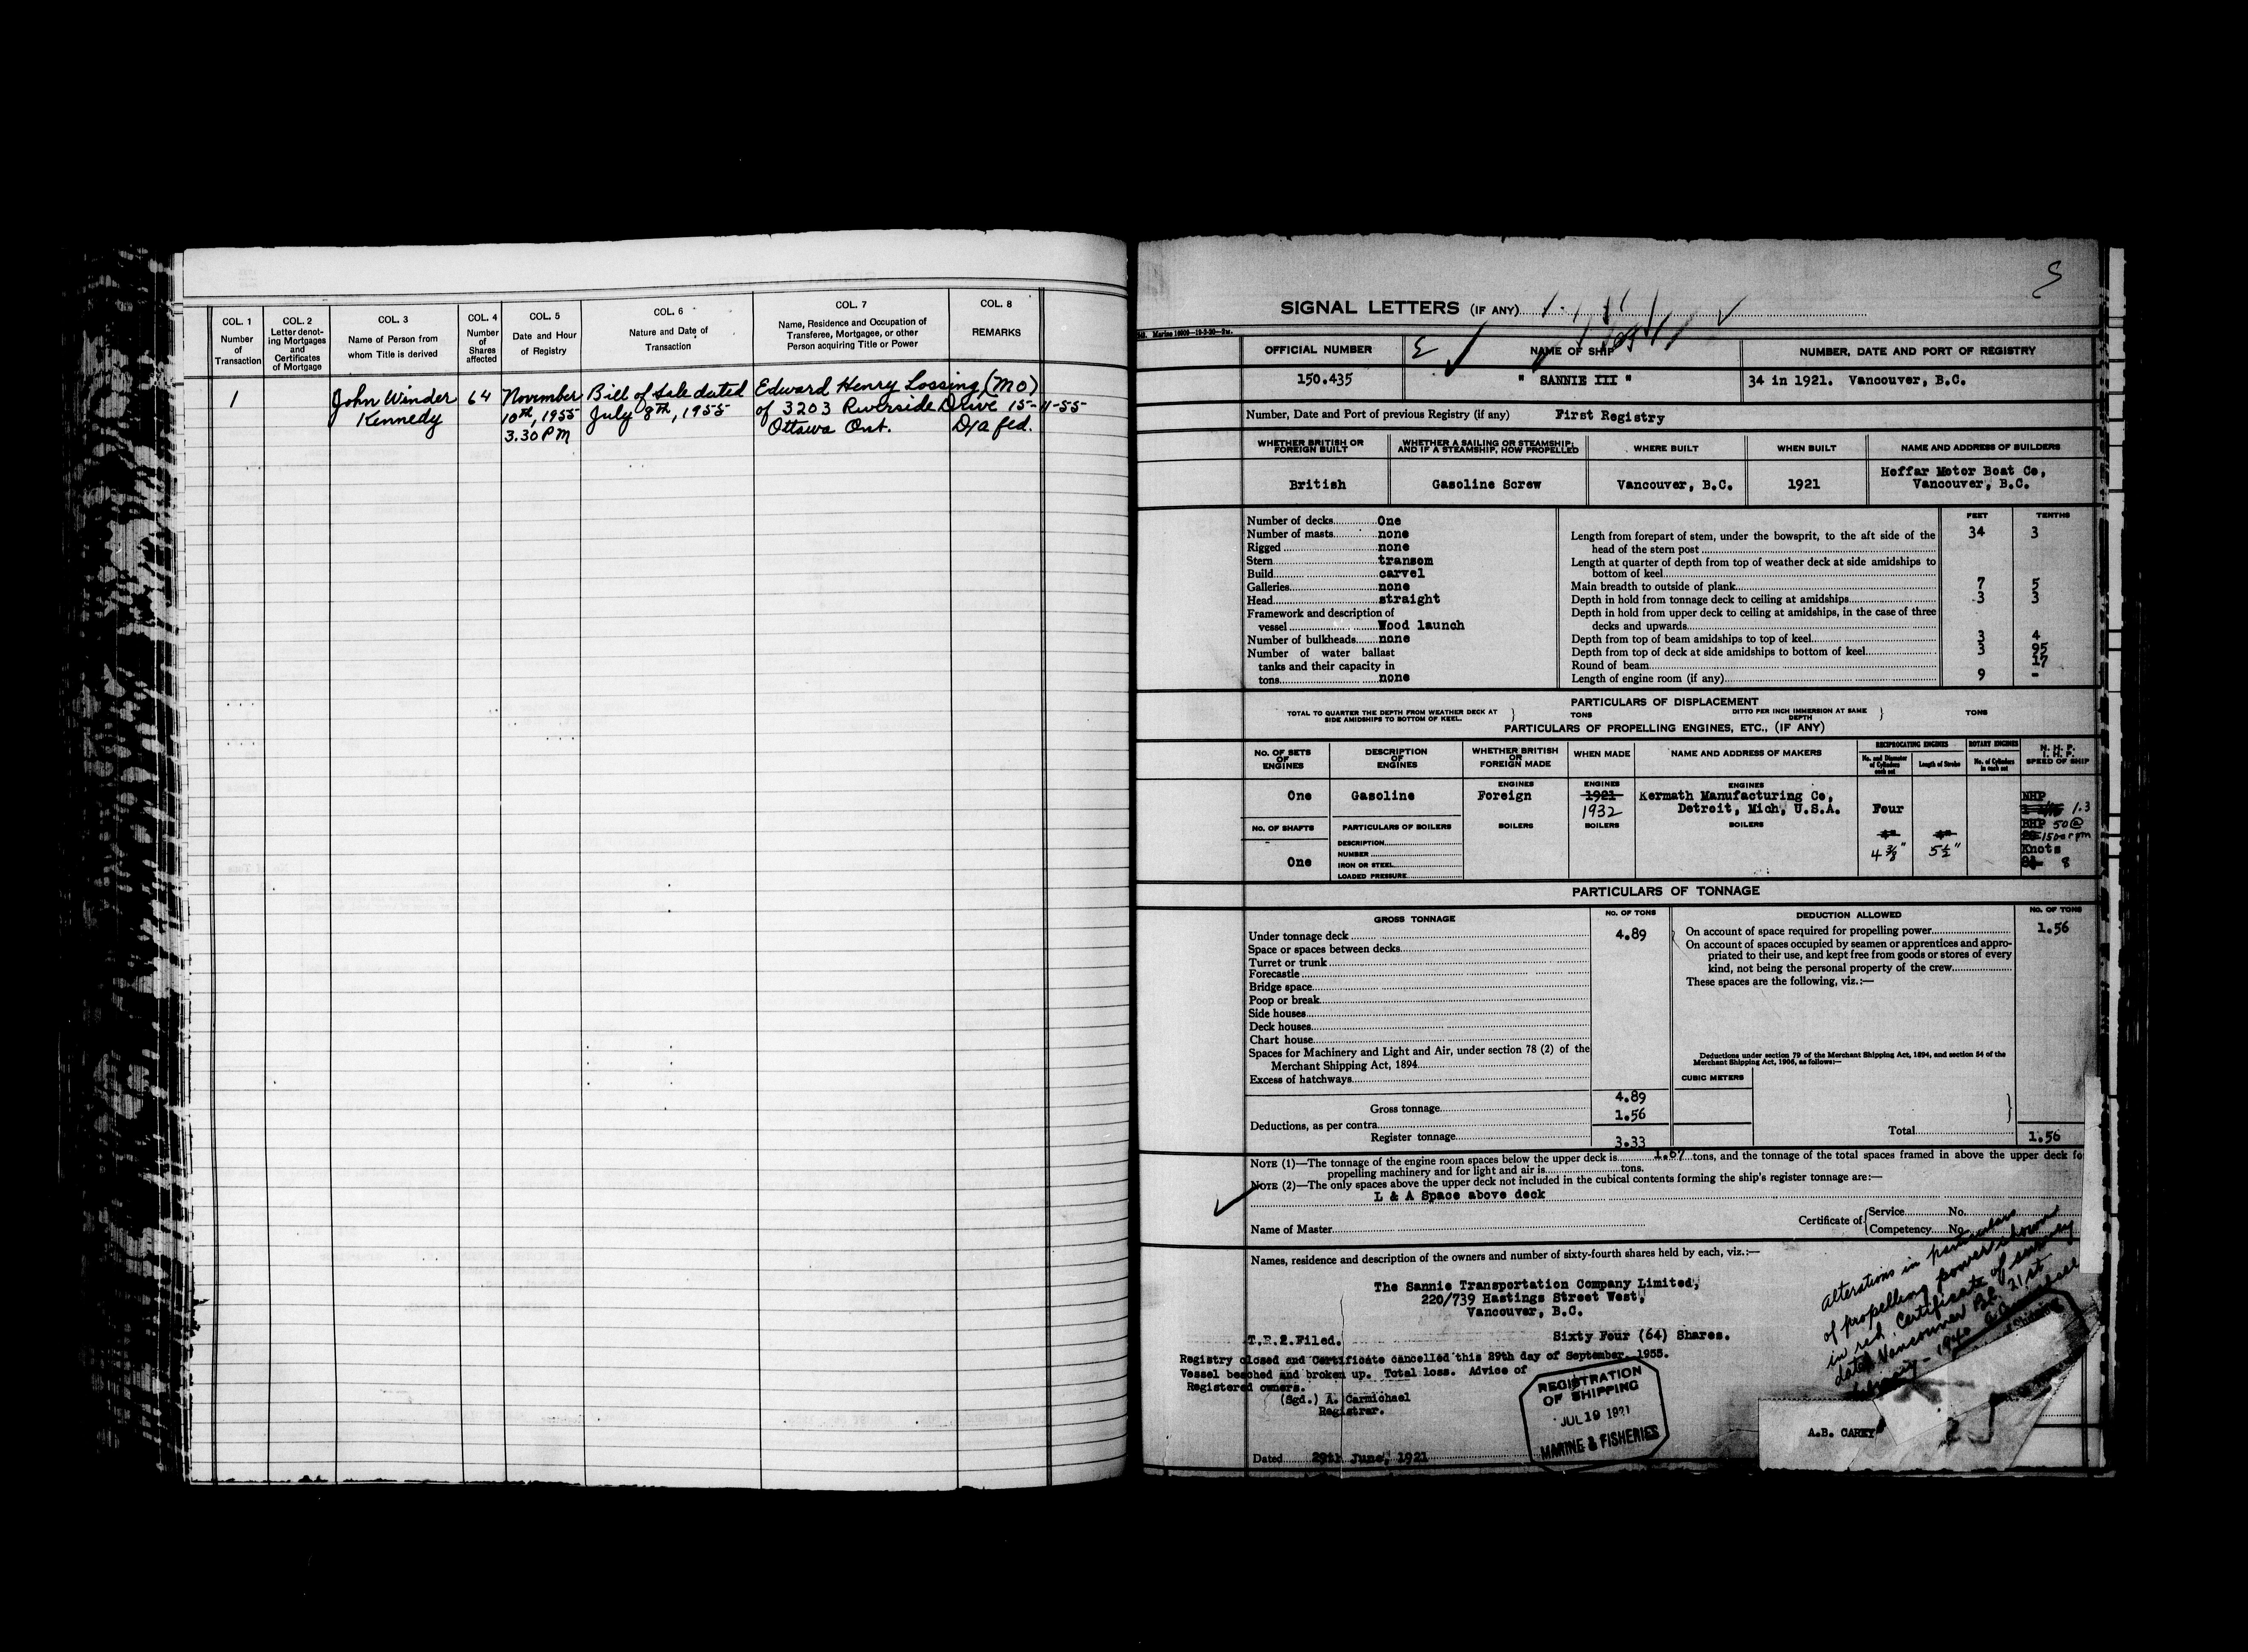 COL. 1 COL. 2 COL. 3 COL. 4 COL. 5 COL. 6 COL. 7 COL. 8
Number of Transaction
Letter denoting Mortgages and Certificates of Mortgage
Name of Person from whom Title is derived
Number of Shares affected
Date and Hour of Registry
Nature and Date of Transaction
Name, Residence and Occupation of Transferee, Mortgagee, or other Person acquiring Title or Power
REMARKS
1 John Winder 64 November Bill of Sale dated Edward Henry Lossing (MO)
Kennedy 10th, 1955 July 8th, 1955 of 3203 Riverside Drive 15-11-55
3.30 PM Ottawa Ont. D/a fed.
S
SIGNAL LETTERS (IF ANY)
Marine 16609—19-3-20—2M.
OFFICIAL NUMBER NAME OF SHIP NUMBER, DATE AND PORT OF REGISTRY
150.435 " SANNIE III " 34 in 1921. Vancouver, B.C.
Number, Date and Port of previous Registry (if any) First Registry
WHETHER BRITISH OR FOREIGN BUILT
WHETHER A SAILING OR STEAMSHIP; AND IF A STEAMSHIP, HOW PROPELLED
WHERE BUILT
WHEN BUILT
NAME AND ADDRESS OF BUILDERS
British Gasoline Screw Vancouver, B.C. 1921
Hoffar Motor Boat Co,
Vancouver, B.C.
Number of decks One
Number of masts none
Rigged none
Stern transom
Build carvel
Galleries none
Head straight
Framework and description of
vessel Wood launch
Number of bulkheads none
Number of water ballast
tanks and their capacity in
tons none
FEET TENTHS
Length from forepart of stem, under the bowsprit, to the aft side of the
head of the stern post 34 3
Length at quarter of depth from top of weather deck at side amidships to
bottom of keel
Main breadth to outside of plank 7 5
Depth in hold from tonnage deck to ceiling at amidships 3 3
Depth in hold from upper deck to ceiling at amidships, in the case of three
decks and upwards
Depth from top of beam amidships to top of keel 3 4
Depth from top of deck at side amidships to bottom of keel 3 95
Round of beam 17
Length of engine room (if any) 9 -
PARTICULARS OF DISPLACEMENT
TOTAL TO QUARTER THE DEPTH FROM WEATHER DECK AT SIDE AMIDSHIPS TO BOTTOM OF KEEL. } TONS
DITTO PER INCH IMMERSION AT SAME DEPTH } TONS
PARTICULARS OF PROPELLING ENGINES, ETC., (IF ANY)
NO. OF SETS OF ENGINES
DESCRIPTION OF ENGINES
WHETHER BRITISH OR FOREIGN MADE
WHEN MADE
NAME AND ADDRESS OF MAKERS
RECIPROCATING ENGINES
No. and Diameter of Cylinders each set
Length of Stroke
ROTARY ENGINES
No. of Cylinders in each set
N. H. P.
I. H. P.
SPEED OF SHIP
ENGINES ENGINES ENGINES
One Gasoline Foreign 1921 Kermath Manufacturing Co,
1932 Detroit, Mich, U.S.A. Four
NHP
1.3
BHP 50 @
1500 rpm
Knots
8
NO. OF SHAFTS PARTICULARS OF BOILERS BOILERS BOILERS BOILERS
One
DESCRIPTION
NUMBER
IRON OR STEEL
LOADED PRESSURE
4 3/8" 5 1/2"
PARTICULARS OF TONNAGE
GROSS TONNAGE NO. OF TONS DEDUCTION ALLOWED NO. OF TONS
Under tonnage deck 4.89
Space or spaces between decks
Turret or trunk
Forecastle
Bridge space
Poop or break
Side houses
Deck houses
Chart house
Spaces for Machinery and Light and Air, under section 78 (2) of the
Merchant Shipping Act, 1894
Excess of hatchways
Gross tonnage 4.89
Deductions, as per contra 1.56
Register tonnage 3.33
On account of space required for propelling power 1.56
On account of spaces occupied by seamen or apprentices and appro-
priated to their use, and kept free from goods or stores of every
kind, not being the personal property of the crew
These spaces are the following, viz.:—
Deductions under section 79 of the Merchant Shipping Act, 1894, and section 54 of the
Merchant Shipping Act, 1906, as follows:—
CUBIC METERS
Total 1.56
NOTE (1)—The tonnage of the engine room spaces below the upper deck is 1.67 tons, and the tonnage of the total spaces framed in above the upper deck fo
propelling machinery and for light and air is tons.
NOTE (2)—The only spaces above the upper deck not included in the cubical contents forming the ship's register tonnage are:—
L & A Space above deck
Name of Master Certificate of { Service No.
Competency No.
Names, residence and description of the owners and number of sixty-fourth shares held by each, viz.:—
The Sannie Transportation Company Limited,
220/739 Hastings Street West,
Vancouver, B.C.
T.R.2.Filed. Sixty Four (64) Shares.
Registry closed and Certificate cancelled this 29th day of September, 1955.
Vessel beached and broken up. Total loss. Advice of
Registered owners.
(Sgd.) A. Carmichael
Registrar.
Dated 29th June, 1921
REGISTRATION
OF SHIPPING
JUL 19 1921
MARINE & FISHERIES
Alterations in particulars
of propelling power shown
in red. Certificate of survey
dated Vancouver B.C. 21st
1940
A.B. CAREY